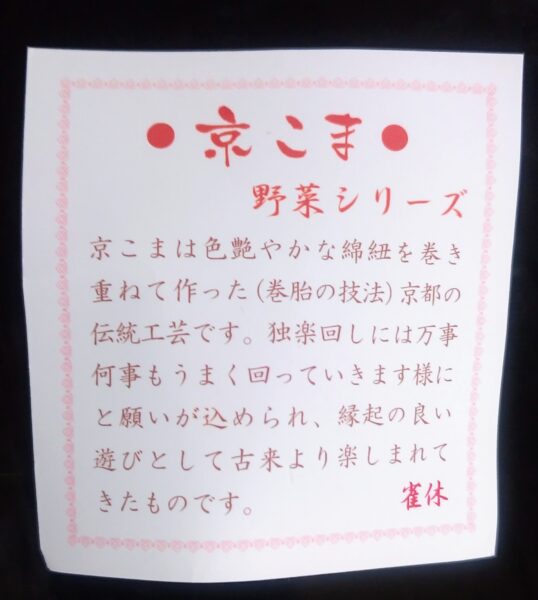 ●京こま●
野菜シリーズ
京こまは色艶やかな綿紐を巻き
重ねて作った(巻胎の技法)京都の
伝統工芸です。独楽回しには万事
何事もうまく回っていきます様に
と願いが込められ、縁起の良い
遊びとして古来より楽しまれて
きたものです。
雀休